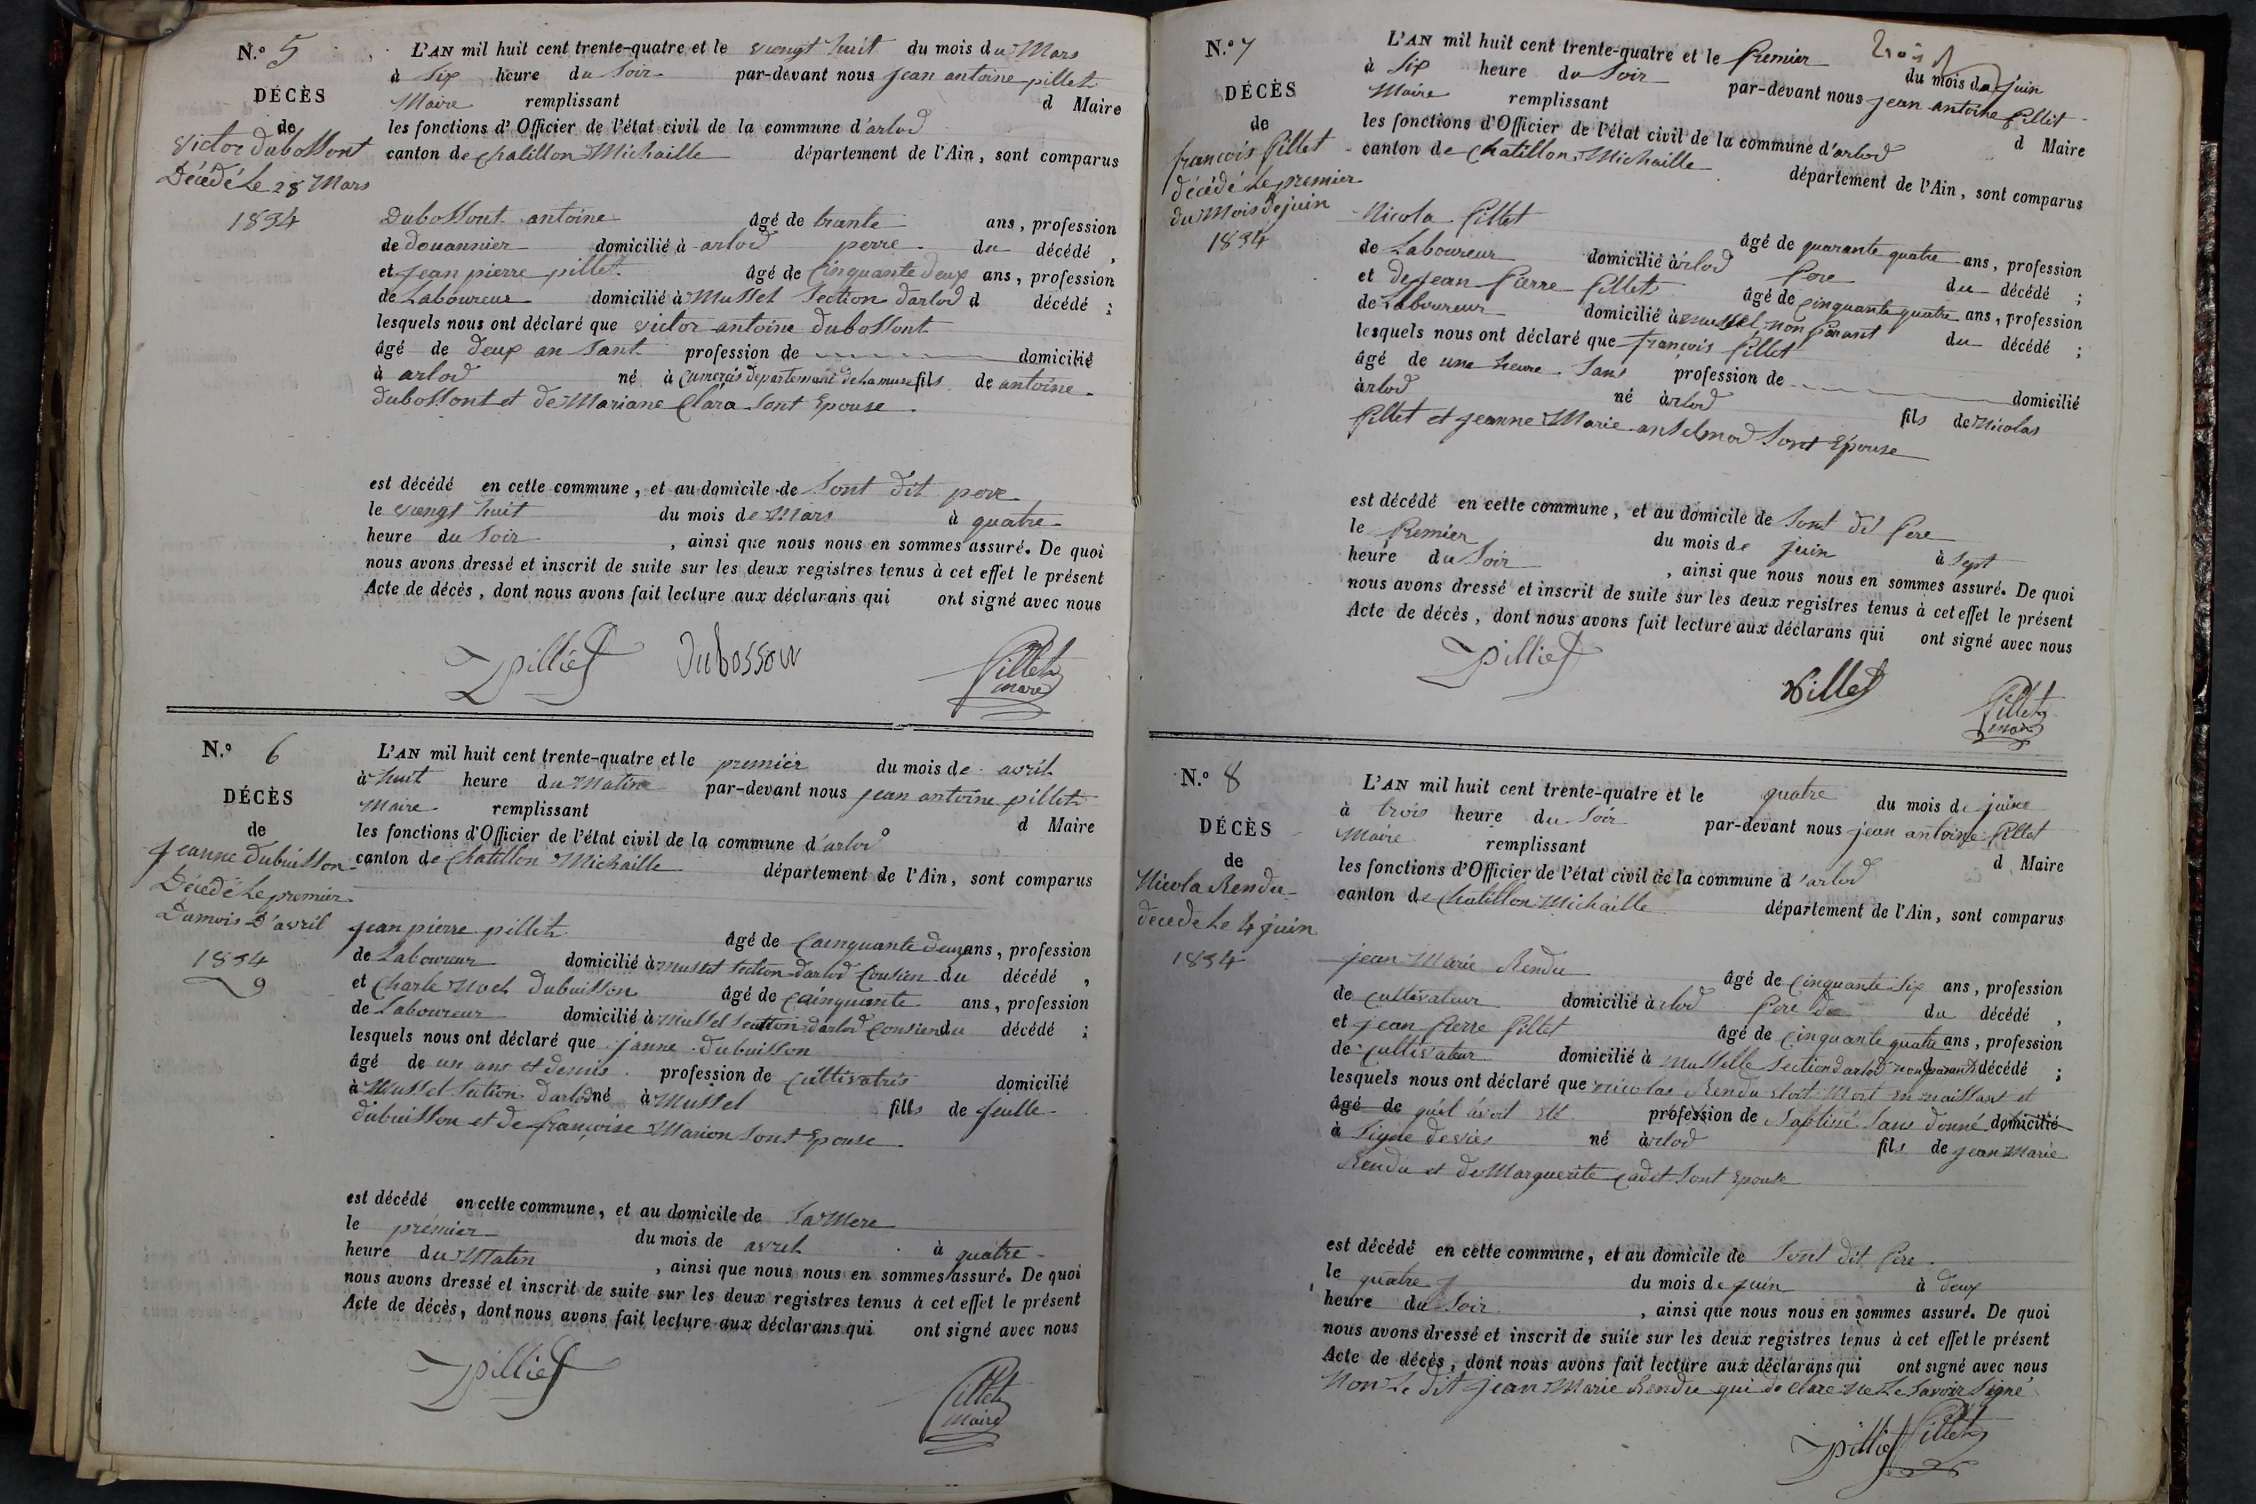 N.º 5
DÉCÈS
de
Victor dubossont
Décédé Le 28 Mars
1834
L'AN mil huit cent trente-quatre et le vuengt huit du mois du Mars
à Six heure du Soir par-devant nous jean antoine pillet
Maire remplissant d Maire
les fonctions d'Officier de l'état civil de la commune d'arlod
canton de Chatillon Michaille département de l'Ain, sont comparus
Dubossont antoine âgé de trante ans, profession
de douannier domicilié à arlod perre du décédé,
et jean pierre pillet âgé de Cinquante deux ans, profession
de Laboureur domicilié à Mussel Section darlod d décédé;
lesquels nous ont déclaré que victor antoine dubossont
âgé de deux an Sant profession de domicilié
à arlod né à departement de La muse fils de antoine
dubossont et de Mariane Clara Sont Epouse
est décédé en cette commune, et au domicile de Sont dit pere
le vuengt huit du mois de Mars à quatre
heure du Soir, ainsi que nous nous en sommes assuré. De quoi
nous avons dressé et inscrit de suite sur les deux registres tenus à cet effet le présent
Acte de décès, dont nous avons fait lecture aux déclarans qui ont signé avec nous
pilliet dubosson Pillet
maire
N.º 6
DÉCÈS
de
jeanne dubuisson
Décédé Le premier
Du mois D'avril
1834
L'AN mil huit cent trente-quatre et le premier du mois de avril
à huit heure du Matin par-devant nous jean antoine pillet
Maire remplissant d Maire
les fonctions d'Officier de l'état civil de la commune d'arlod
canton de Chatillon Michaille département de l'Ain, sont comparus
jean pierre pillet âgé de Cainquante deux ans, profession
de Laboureur domicilié à mussel Section darlod Cousien du décédé,
et Charle Noel dubuisson âgé de Cainquante ans, profession
de Laboureur domicilié à Mussel Section darlod Cousien du décédé;
lesquels nous ont déclaré que janne dubuisson
âgé de un ans et demis profession de Cultivatris domicilié
à Mussel Section darlod né à Mussel fills de feulle
dubuisson et de françoise Marion Sont Epouse
est décédé en cette commune, et au domicile de Sa Mere
le premier du mois de avril à quatre
heure du Matin, ainsi que nous nous en sommes assuré. De quoi
nous avons dressé et inscrit de suite sur les deux registres tenus à cet effet le présent
Acte de décès, dont nous avons fait lecture aux déclarans qui ont signé avec nous
pilliet Pillet
Maire
N.º 7
DÉCÈS
de
françois Pillet
décédé Le premier
du Mois de juin
1834
trois
L'AN mil huit cent trente-quatre et le Premier du mois de juin
à Six heure du Soir par-devant nous jean antoine Pillet
Maire remplissant d Maire
les fonctions d'Officier de l'état civil de la commune d'arlod
canton de Chatillon Michaille département de l'Ain, sont comparus
Nicola Pillet âgé de quarante quatre ans, profession
de Laboureur domicilié àrlod Pere du décédé;
et de jean Pierre Pillet âgé de Cinquante quatre ans, profession
de Laboureur domicilié à mussel non Parant du décédé;
lesquels nous ont déclaré que françois Pillet
âgé de une heure Sans profession de domicilié
àrlod né àrlod fils de Nicolas
Pillet et jeanne Marie anselmod Sont Epouse
est décédé en cette commune, et au domicile de Sont dit Pere
le Premier du mois de juin à Sept
heure du Soir, ainsi que nous nous en sommes assuré. De quoi
nous avons dressé et inscrit de suite sur les deux registres tenus à cet effet le présent
Acte de décès, dont nous avons fait lecture aux déclarans qui ont signé avec nous
pilliet pillet Pillet
maire
N.º 8
DÉCÈS
de
Nicola Rendu
decede Le 4 juin
1834
L'AN mil huit cent trente-quatre et le quatre du mois de juin
à trois heure du Soir par-devant nous jean antoine Pillet
Maire remplissant d Maire
les fonctions d'Officier de l'état civil de la commune d'arlod
canton de Chatillon Michaille département de l'Ain, sont comparus
jean Marie Rendu âgé de Cinquante Six ans, profession
de Cultivateur domicilié àrlod Pere de du décédé,
et jean Pierre Pillet âgé de Cinquante quatre ans, profession
de Cultivateur domicilié à Musselle Section darlod non parant décédé;
lesquels nous ont déclaré que nicolas Rendu Etoit Mort en naissant et
âgé de qu'el avoit Eté profession de Baptisé Sans donné domicilié
à Signe de vies né àrlod fils de jean Marie
Rendu et de Marguerite Cadet Sont Epouse
est décédé en cette commune, et au domicile de Sont dit Pere
le quatre du mois de juin à deux
heure du Soir, ainsi que nous nous en sommes assuré. De quoi
nous avons dressé et inscrit de suite sur les deux registres tenus à cet effet le présent
Acte de décès, dont nous avons fait lecture aux déclarans qui ont signé avec nous
Non Le dit jean Marie Rendu qui de clare ne Le Savoir Signé
pilliet Pillet